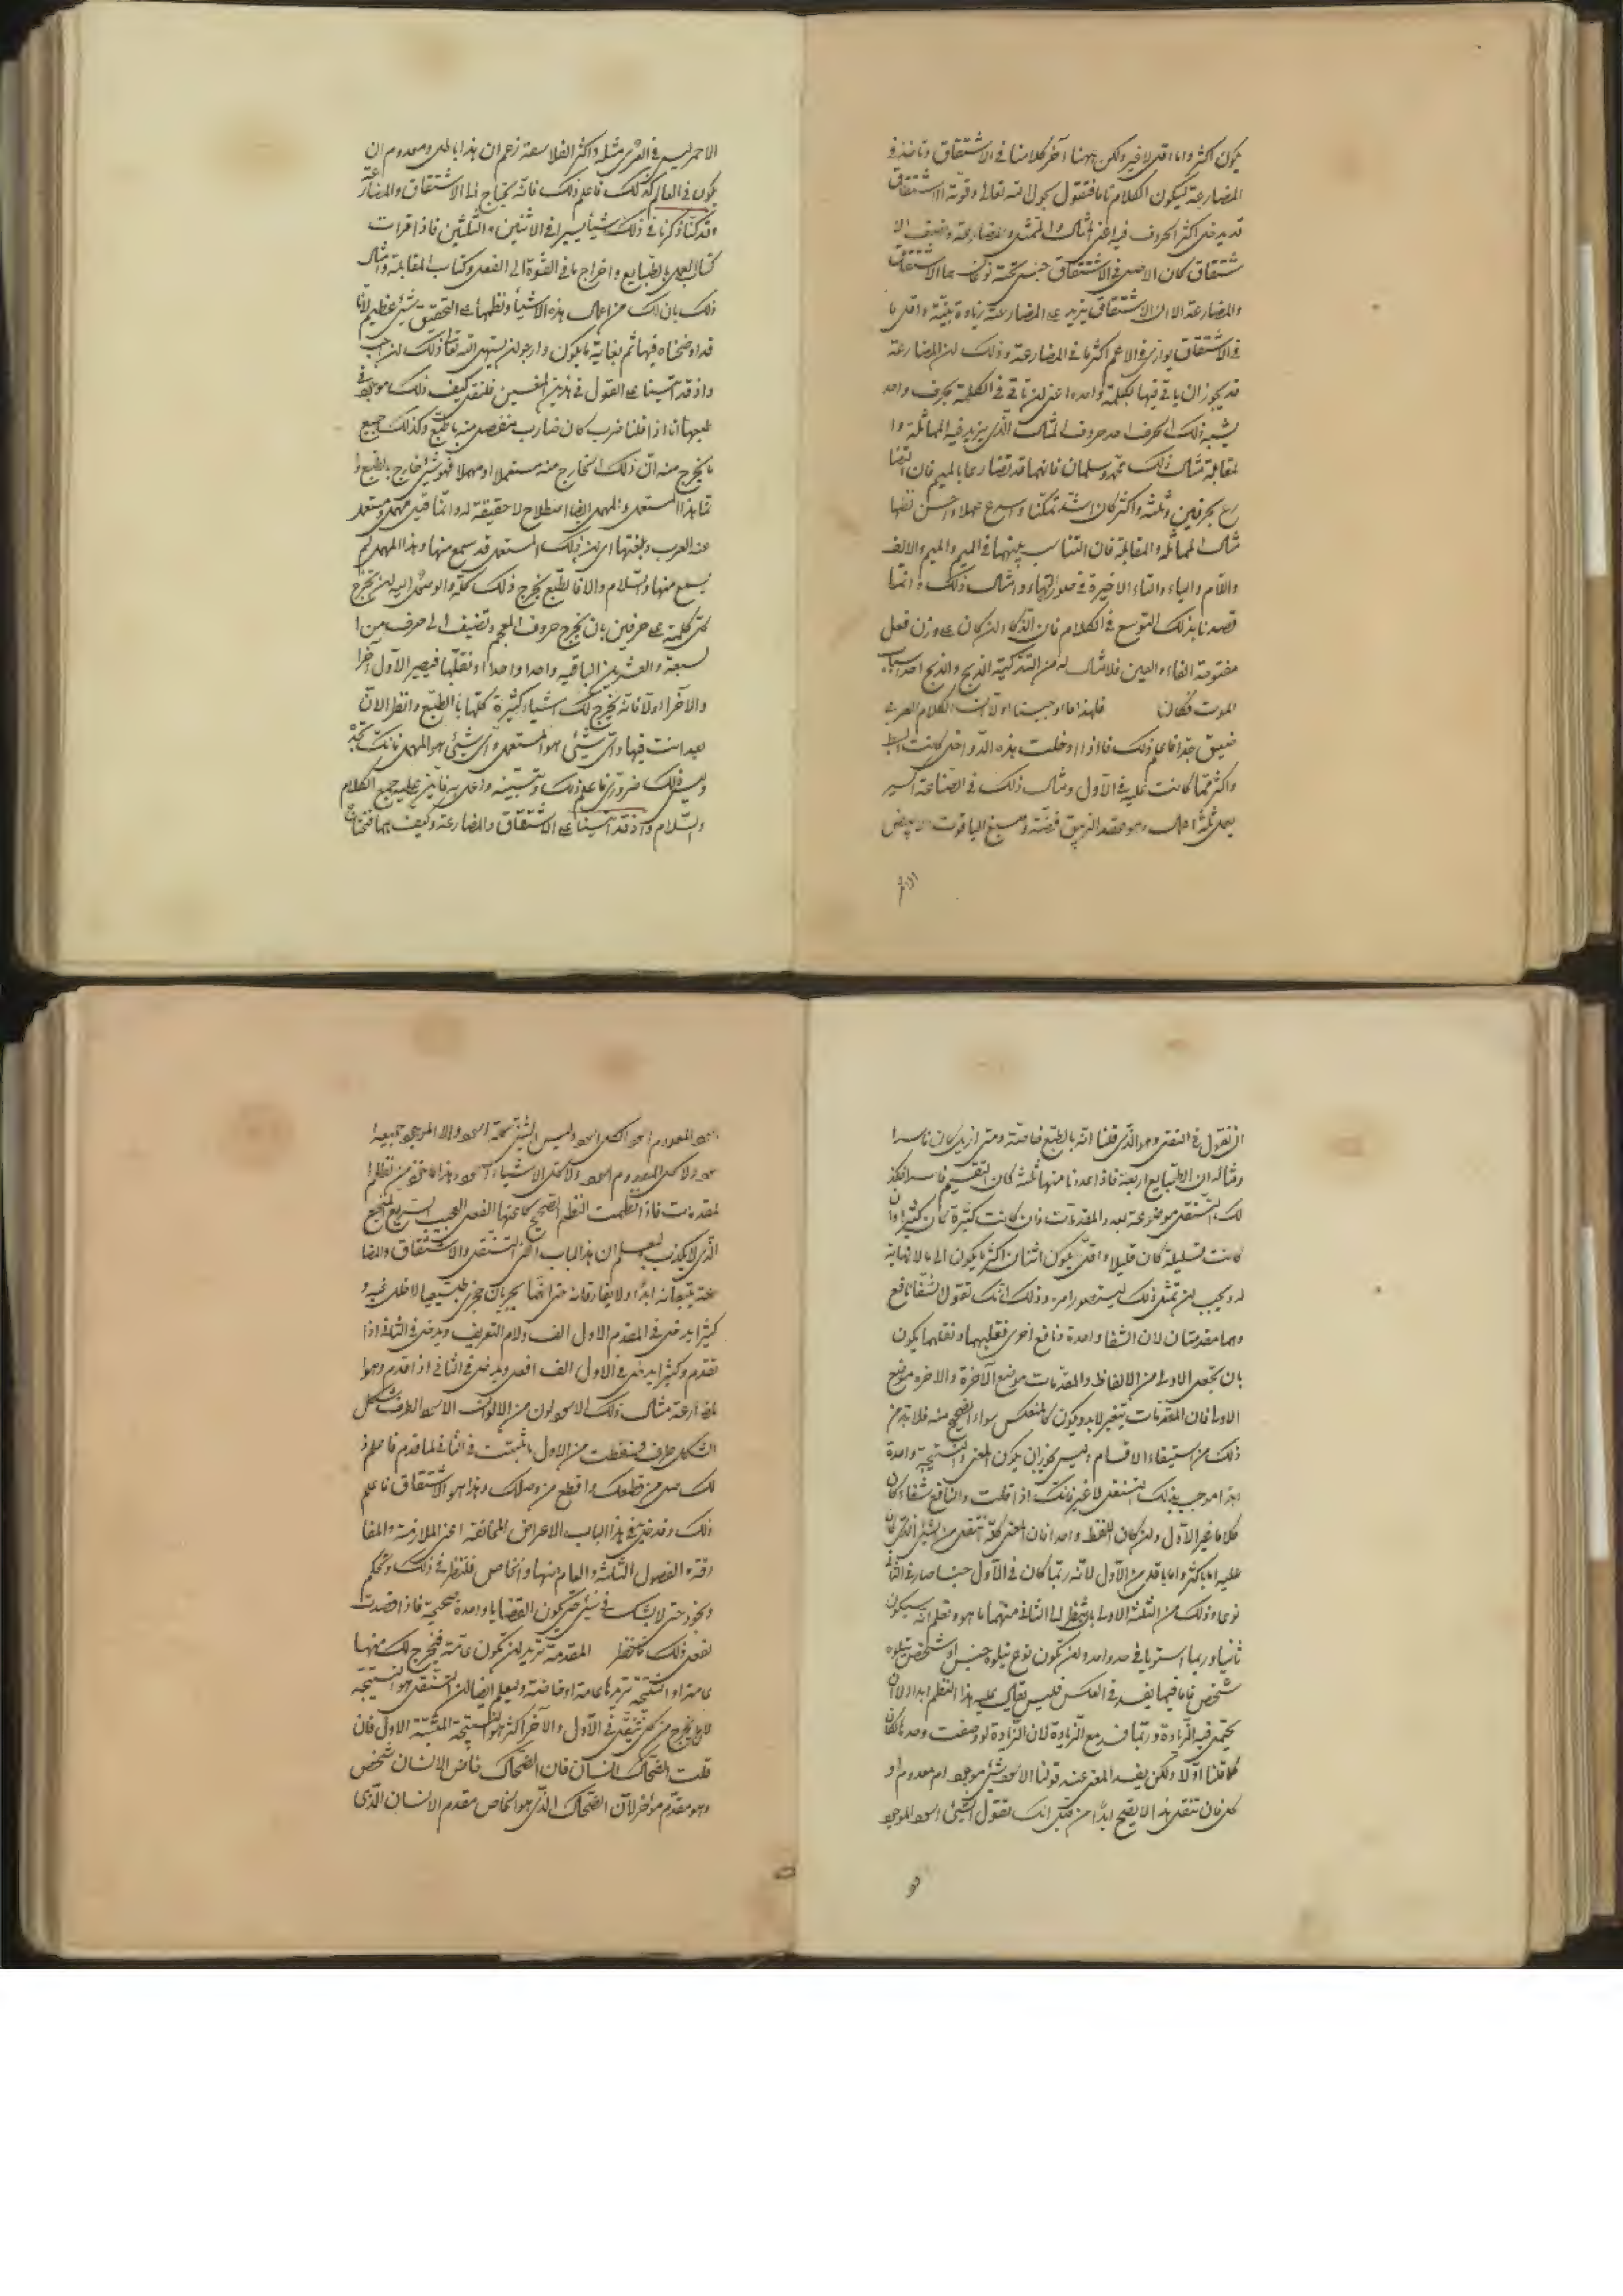 يكون اكثر واما اقل لا غير ولكن ههنا آخر كلامنا في الاشتقاق وناخذ في
المضارعة ليكون الكلام تاما فنقول بحول الله تعالى وقوته الاشتقاق
قد يدخل اكثر الحروف فيه اعني المثال والتمثل والمضارعة وضعف الا
شتقاق كان الاصل في الاشتقاق جنس تحته نوعان هما الاشتقاق
والمضارعة الا ان الاشتقاق يزيد على المضارعة زيادة بينة واقل ما
في الاشتقاق يوازى في الاعم اكثر ما في المضارعة وذلك لان المضارعة
قد يجوز ان ياتي فيها بكلمة واحدة اعني ان تاتي في الكلمة بحرف واحد
يشبه ذلك الحرف احد حروف المثال الذي يزيد فيه المماثلة وا
لمقابلة مثال ذلك محمد وسلمان فانهما قد تضارعا بالميم فان اتفقا
رع بحرفين وثلثة واكثر كان اشد تمكنا واسرع عملا واحسن نظما
مثال المماثلة والمقابلة فان التناسب بينهما في الميم والميم والالف
واللام والباء والتاء الاخيرة في صورة الهاء وامثال ذلك وانما
قصدنا بذلك التوسع في الكلام فان الذكاء ان كان على وزن فعل
مفتوحة الفاء والعين فلا شك انه من التذكية الذبح والذبح احد اسباب
الموت فكان فلهذا ما اوجبنا اولا ان الكلام العربي
ضيق جدا فاعلم ذلك فاذا ادخلت هذه الدواخل كانت ابسط
واكثر مما كانت عليه في الاول ومثال ذلك في الصناعة اكسير
يعمل ثلثة اعمال وهو عقد الزيبق فضة وصبغ الياقوت الابيض
الاحمر
الاحمر ليس في العرى مثله واكثر الفلاسفة زعم ان هذا باطل ومعدوم ان
يكون في العالم كذلك فاعلم ذلك فانه يحتاج الى الاشتقاق والمضارعة
وقد كنا ذكرنا في ذلك شيئا يسيرا في الاثنين والثلثين فاذا قرات
كتاب العمل بالطبايع واخراج ما في القوة الى الفعل وكتاب المقابلة وامثال
ذلك بان لك من اعمال هذه الاشياء ونظمها على التحقيق شيئ عظيم لانا
قد اوضحناه فيها ثم بغاية ما يكون وارجو ان يسهل الله تعالى ذلك لمن احب
واذ قد اتينا على القول في هذين الفنين فلنقل كيف ذلك موجود في
طبعها انا اذا قلنا ضرب كان ضارب منفصل منه بالطبع وكذلك جميع
ما يخرج منه ان ذلك الخارج منه مستعملا او مهملا فهو شيئ خارج بالطبع وا
نما هذا المستعمل والمهمل ايضا اصطلاح لا حقيقة له وانما قيل مهمل ومستعمل
عند العرب وبلغتها اي ان ذلك المستعمل قد سمع منها وهذا المهمل لم
يسمع منها والسلام والا فالطبع يخرج ذلك كله والوصول اليه ان تخرج
كل كلمة على حرفين بان تخرج حروف المعجم وتضيف الى حرف من ا
لسبعة والعشرين الباقية واحدا واحدا او نقلها فيصير الاول آخرا
والآخر اولا فانه يخرج لك اشياء كثيرة كلها بالطبع وانظر الآن
بعد انت فيها واي شيئ هو المستعمل واي شيئ هو المهمل فانك تجد
وليس ذلك ضروري فاعلم ذلك وتبينه واعمل به فان عليه جميع الكلام
والسلام واذ قد اتينا على الاشتقاق والمضارعة وكيف هما فنحتاج
ان نقول في التنقل وهو الذي قلنا انه بالطبع خاصة ومتى ازيل كان فاسدا
ومثاله ان الطبايع اربعة فاذا عددنا منها ثلثة كان التقسيم فاسدا فكذ
لك التنقل موضوعة بعد والمقدمات وان كانت كثيرة كان كثيرا وان
كانت قليلة كان قليلا واقل يكون اثنان اكثر ما يكون الى ما لا نهاية
له ويجب ان تمثل ذلك ليتصور امره وذلك انك تقول الشفا نافع
وهما مقدمتان لان الشفا واحدة ونافع اخرى فقلبهما ونقلهما يكون
بان تجعل الاولى من الالفاظ والمقدمات موضع الآخرة والاخرة موضع
الاولى فان المقدمات يتغير لابد ويكون كالمنعكس سواء الصحيح منه فلابد من
ذلك من استيفاء الاقسام وليس يجوز ان يكون المعنى والنتيجة واحدة
ابدا موجب بذلك التنقل لا غير فانك اذا قلت والنافع شفاء كان
كلاما غير الاول وان كان اللفظ واحدا فان المعنى كله تنقل من الشيئ الذي كان
عليه اما باكثر واما باقل من الاول لانه ربما كان في الاول جنسا صار في الثاني
نوعا وذلك من الثلثة الاولى بالنظر الى الثاني منهما ما هو وتعلم انه سيكون
ثانيا وربما استويا في حد واحد وان يكون نوع يتلوه جنس او شخص يتلوه
شخص فاما فيما يفسد في العكس فليس يقال عليه هذا النظم ابدا ولا ان
يحتمل فيه الزيادة وربما فسد مع الزيادة لان الزيادة لو وضعت وحدها لكان
كما قلنا اولا ولكن يفسد المعنى عند قولنا الاسود شيئ موجود ام معدوم او
كل فان تنقل هذا لا يصح ابدا من قبل انك تقول الشيئ اسود الموجود
سود
اسود المعدوم اسود الكل اسود وليس الشيئ تحته اسود ولا الموجود جميعه ا
سود ولا كل المعدوم اسود ولا كل الاشياء اسود وهذا ما تخوف من نظم ا
لمقدمات فاذا انتظمت النظم الصحيح كان عنها الفعل العجيب السريع المنجع
الذي لا يكذب وليعلم ان هذا الباب اعني التنقل والاشتقاق والمضا
رعة يتبعانه ابدا ولا يفارقانه حتى انهما يجريان مجرى طبيعيا لا ظل غيره و
كثيرا يدخل في المقدم الاول الف ولام التعريف ويدخل في الثاني اذا
تقدم وكثيرا يدخل في الاول الف افعل ويدخل في الثاني اذا قدم وهو ا
لمضارعة مثال ذلك الاسود لون من الالوان الاسود الظرف شكل
الشكل ظرف فسقطت من الاول ما ثبتت في الثاني لما قدم فاعلم ذ
لك صل من قطعك واقطع من وصلك وهذا هو الاشتقاق فاعلم
ذلك وقد دخل في هذا الباب الاعراض المخالفة اعني الملازمة والمفا
رقة والفصول الثلثة والعام منها والخاص فلننظر في ذلك ونحكم
ونجود حتى لا يشك في شيئ حتى يكون القضايا واحدة صحيحة فاذا قصدت
لفعل ذلك فانظر المقدمة تريد ان تكون عامة فيخرج لك منها
عامة او النتيجة تريدها عامة او خاصة وليعلم ايضا ان التنقل هو النتيجة
لان ما يخرج من كل تنقل في الاول والآخر اكثر هو النتيجة المثبتة الاول فان
قلت الضحاك انسان فان الضحاك خاص الانسان شخص
وهو مقدم مؤخر لان الضحاك الذي هو الخاص مقدم الانسان الذي